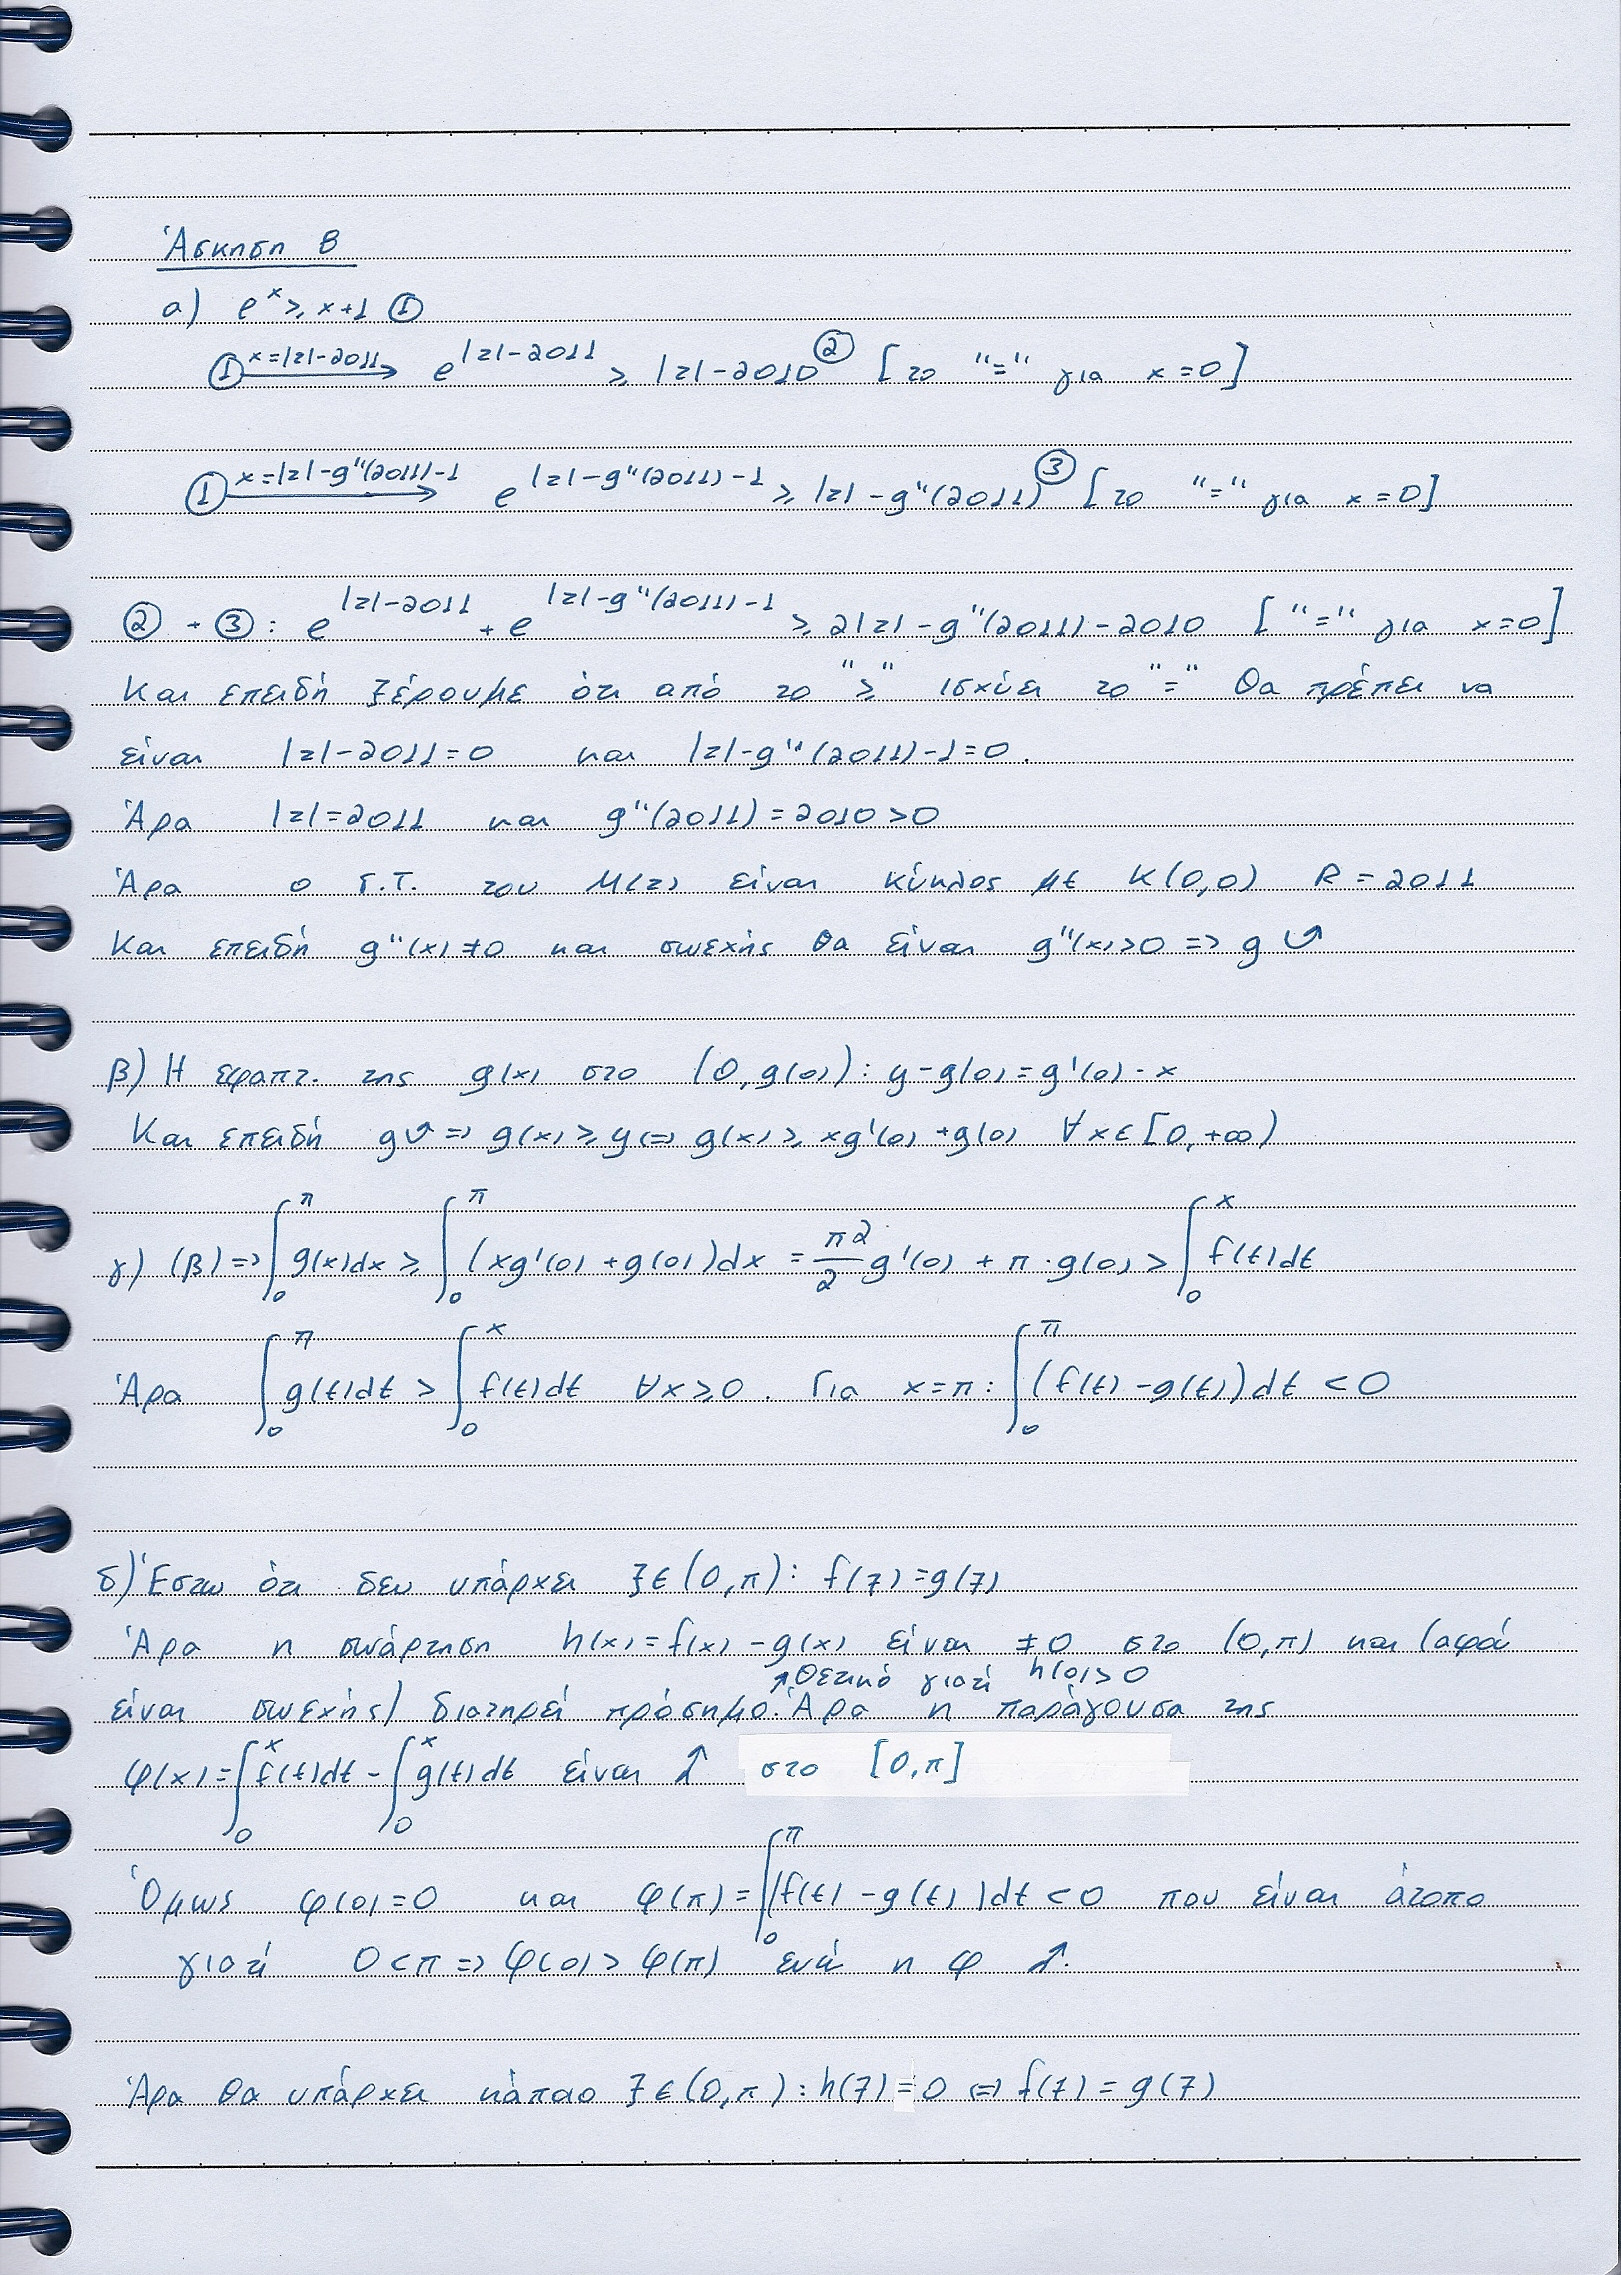 Άσκηση 8
α) e^x ≥ x+1 ①
① x=|z|-2011 → e^(|z|-2011) ≥ |z|-2010 ② [το "=" για x=0]
① x=|z|-g''(2011)-1 → e^(|z|-g''(2011)-1) ≥ |z|-g''(2011) ③ [το "=" για x=0]
② + ③: e^(|z|-2011) + e^(|z|-g''(2011)-1) ≥ 2|z|-g''(2011)-2010 ["=" για x=0]
Και επειδή ξέρουμε ότι από το "≥" ισχύει το "=" θα πρέπει να
είναι |z|-2011=0 και |z|-g''(2011)-1=0.
Άρα |z|=2011 και g''(2011)=2010>0
Άρα ο Γ.Τ. του M(z) είναι κύκλος με K(0,0) R=2011
Και επειδή g''(x)≠0 και συνεχής θα είναι g''(x)>0 => g ⤻
β) Η εφαπτ. της g(x) στο (0,g(0)): y-g(0)=g'(0)·x
Και επειδή g⤻ => g(x) ≥ y <=> g(x) ≥ xg'(0)+g(0) ∀x∈[0,+∞)
γ) (β) => ∫₀^π g(x)dx ≥ ∫₀^π (xg'(0)+g(0))dx = π²/2 g'(0) + π·g(0) > ∫₀^x f(t)dt
Άρα ∫₀^π g(t)dt > ∫₀^x f(t)dt ∀x≥0. Για x=π: ∫₀^π (f(t)-g(t))dt < 0
δ) Έστω ότι δεν υπάρχει ξ∈(0,π): f(ξ)=g(ξ)
Άρα η συνάρτηση h(x)=f(x)-g(x) είναι ≠0 στο (0,π) και (αφού
↗θετικό γιατί h(0)>0
είναι συνεχής) διατηρεί πρόσημο. Άρα η παράγουσα της
φ(x)=∫₀^x f(t)dt - ∫₀^x g(t)dt είναι ↑ στο [0,π]
Όμως φ(0)=0 και φ(π)=∫₀^π (f(t)-g(t))dt<0 που είναι άτοπο
γιατί 0<π => φ(0)>φ(π) ενώ η φ ↑.
Άρα θα υπάρχει κάποιο ξ∈(0,π): h(ξ)=0 <=> f(ξ)=g(ξ)